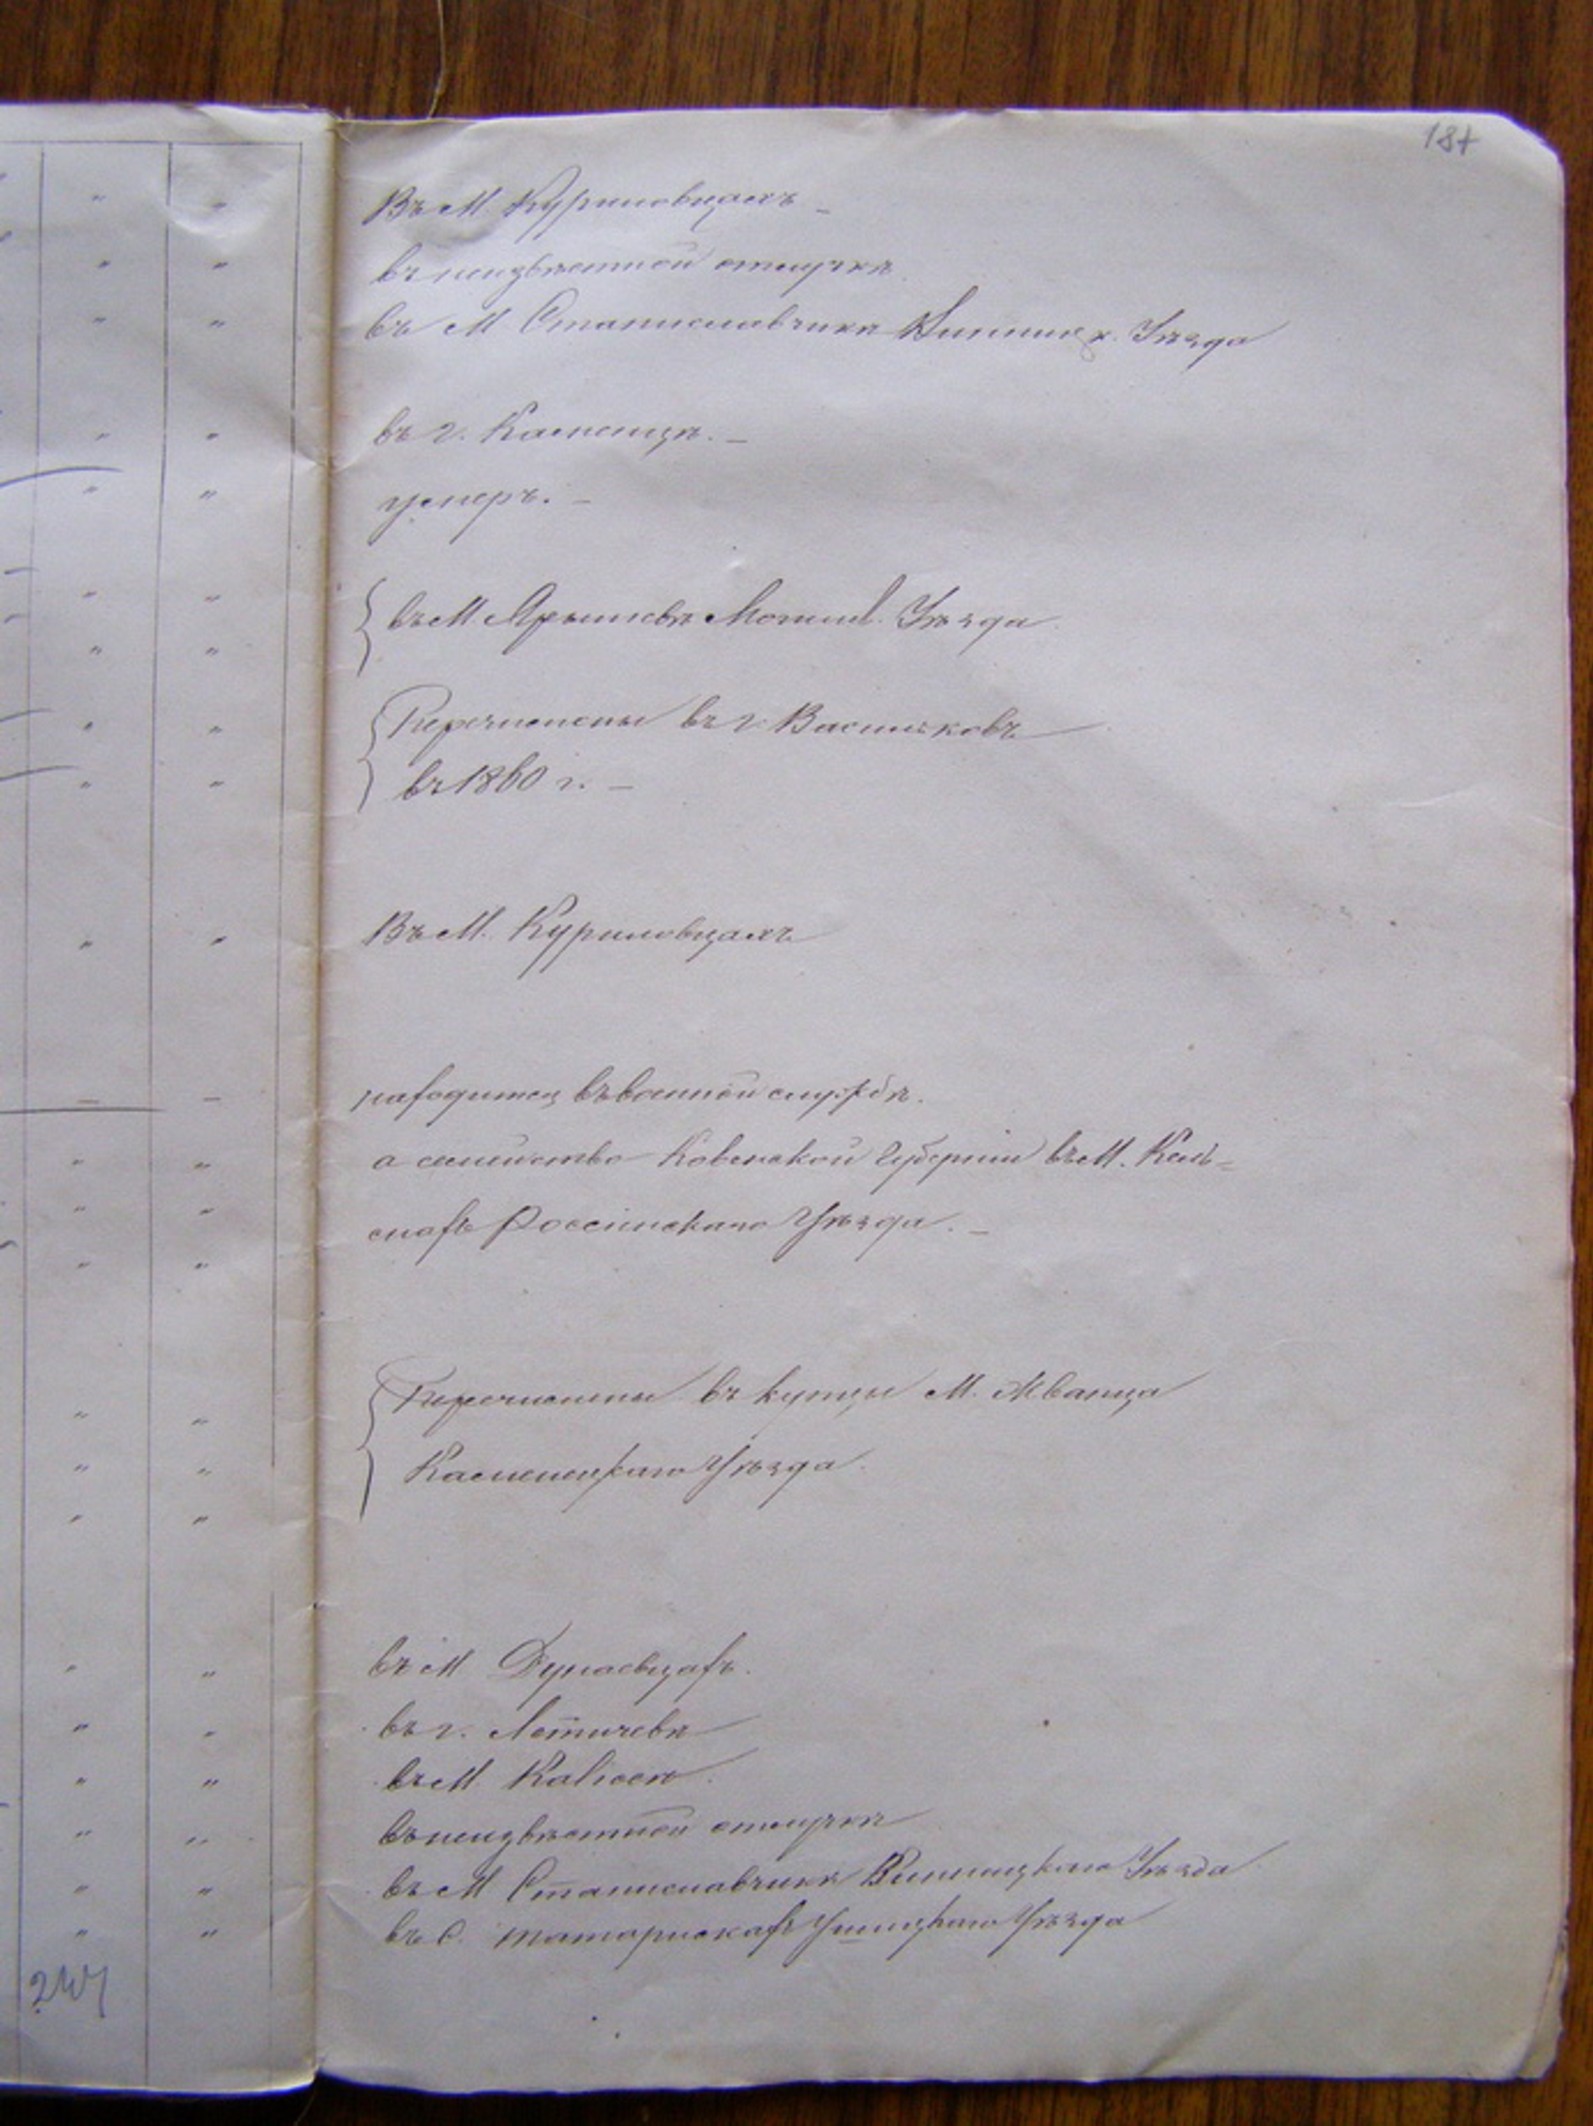 187
Въ М. Куриловцахъ
въ неизвѣстной отлучкѣ
въ М Станиславчикѣ Винниц к. Уѣзда
въ г. Каменцѣ. –
умеръ. –
въ М Ярышевѣ Могил. Уѣзда.
Перечислены въ г. Васильковъ
въ 1860 г. –
Въ М. Куриловцахъ
находится въ военной службѣ.
а семейство Ковенской Губерніи въ М. Кель=
махъ Россіинскаго Уѣзда. –
Перечислены въ купцы М. Жванца
Каменецкаго Уѣзда.
въ М Дунаевцахъ.
въ г. Летичевѣ
въ М.
въ неизвѣстной отлучкѣ
въ М Станиславчикѣ Винницкаго Уѣзда
въ С. Татарискахъ Ушицкаго Уѣзда